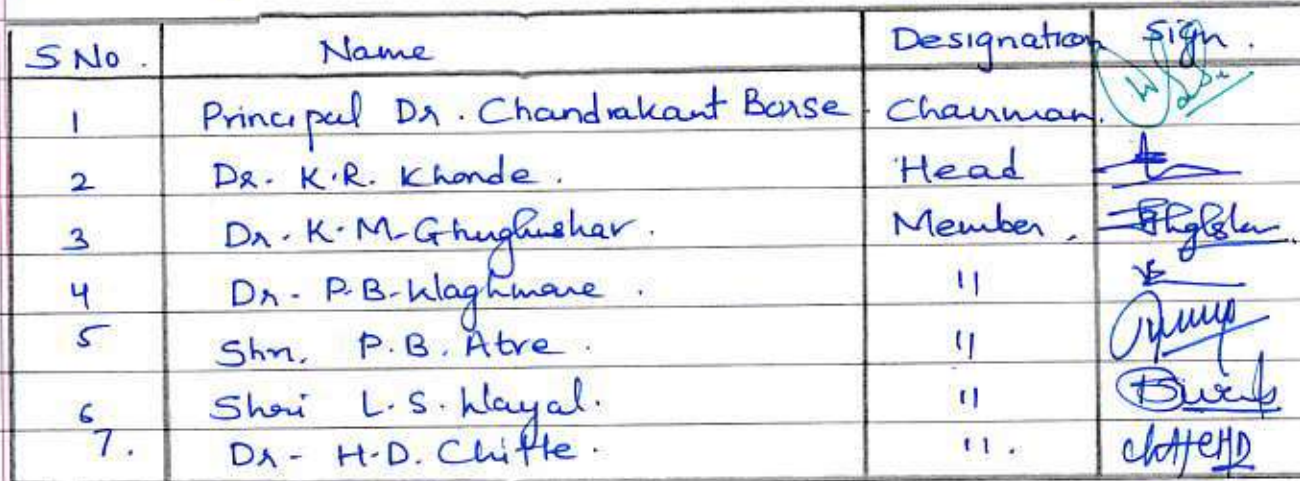 S No. Name Designation Sign.
1 Principal Dr. Chandrakant Barse Chairman.
2 Dr. K.R. Khonde. Head
3 Dr. K.M. Ghughushkar. Member.
4 Dr. P.B. Waghmare. "
5 Shri. P.B. Atre. "
6 Shri L.S. Wayal. "
7. Dr. H.D. Chitte. ".